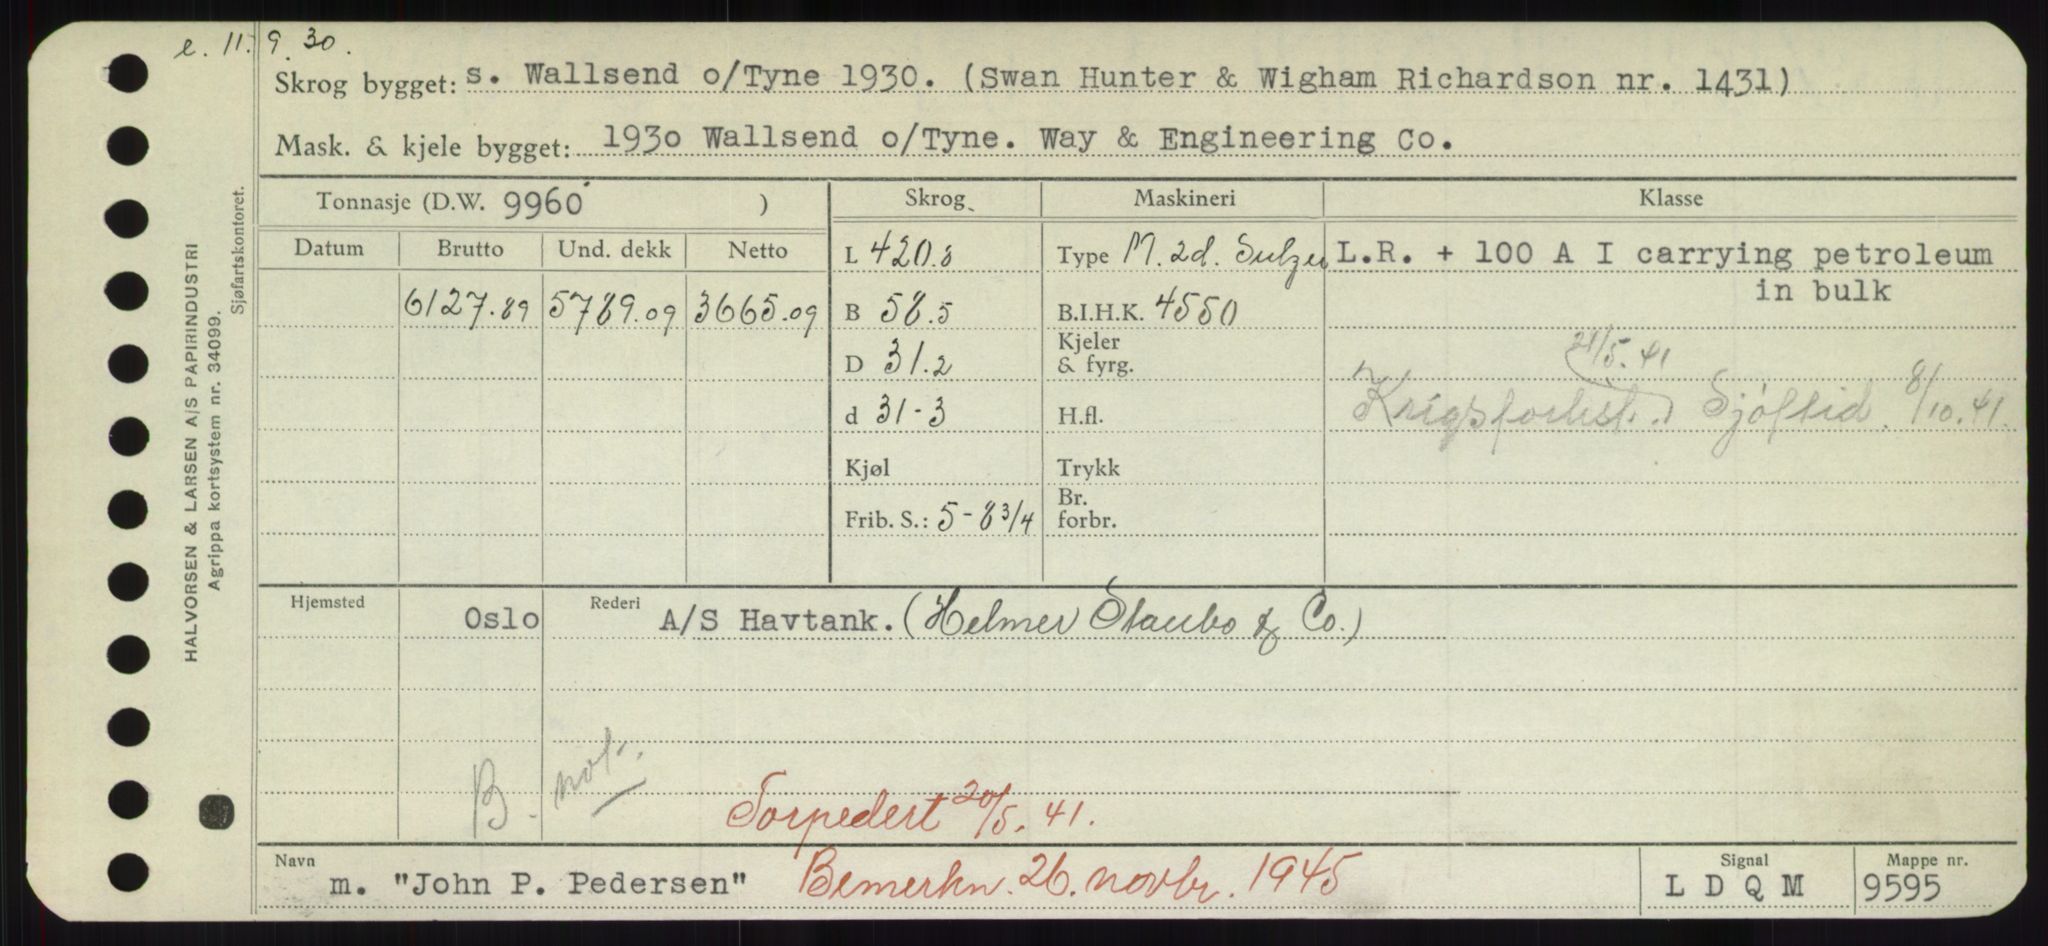 e. 11. 9. 30.
Skrog bygget: s. Wallsend o/Tyne 1930. (Swan Hunter & Wigham Richardson nr. 1431)
Mask. & kjele bygget: 1930 Wallsend o/Tyne. Way & Engineering Co.
Tonnasje (D.W. 9960 ) Skrog Maskineri Klasse
Datum Brutto Und. dekk Netto L 420.8 Type M. 2d. Sulzer L.R. + 100 A I carrying petroleum
in bulk
6127.89 5789.09 3665.09 B 58.5 B.I.H.K. 4550
D 31.2 Kjeler
& fyrg.
21/5. 41
d 31-3 H.fl. Krigsforlist. Sjøftid. 8/10.41.
Kjøl Trykk
Frib. S.: 5-8 3/4 Br.
forbr.
Hjemsted Oslo Rederi A/S Havtank. (Helmer Staubo & Co.)
B. not.
Torpedert 20/5. 41.
Navn m. "John P. Pedersen" Bemerkn. 26. novbr. 1945 Signal L D Q M Mappe nr. 9595
HALVORSEN & LARSEN A/S PAPIRINDUSTRI
Agrippa kortsystem nr. 34099.
Sjøfartskontoret.